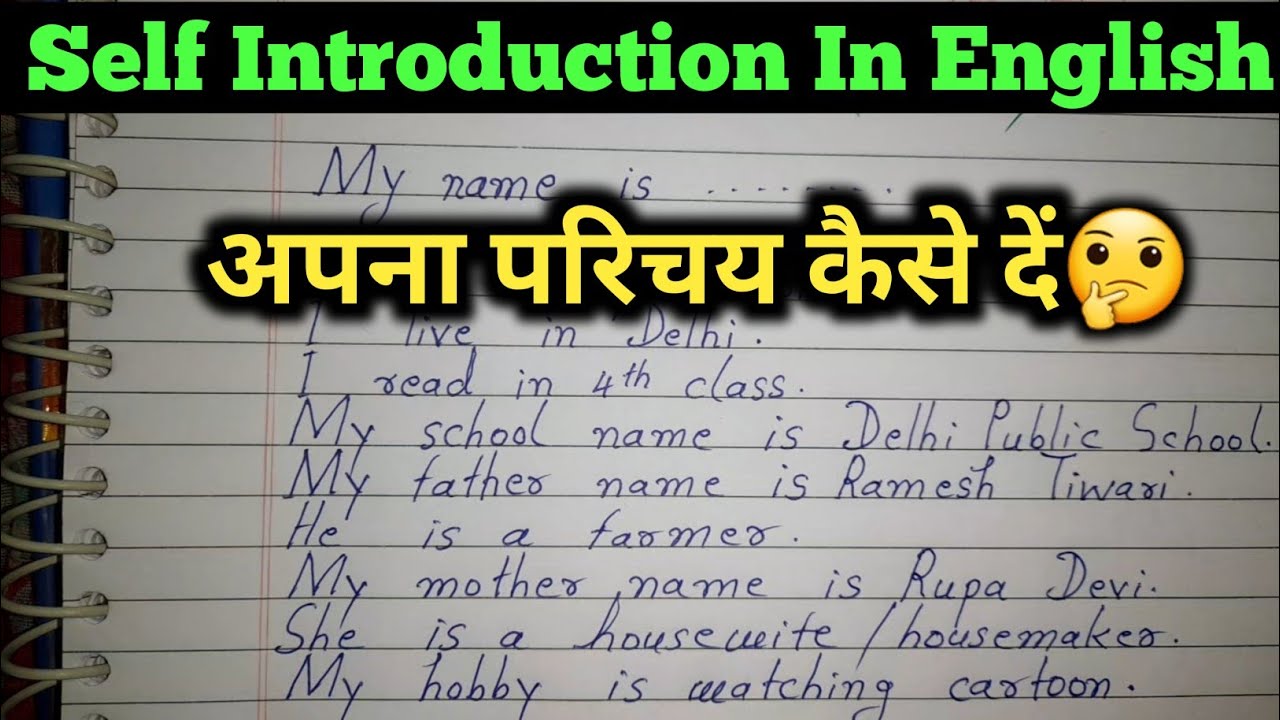 Self Introduction In English
My name is .........
अपना परिचय कैसे दें
I live in Delhi.
I read in 4th class.
My school name is Delhi Public School.
My father name is Ramesh Tiwari.
He is a farmer.
My mother name is Rupa Devi.
She is a housewife / housemaker.
My hobby is watching cartoon.